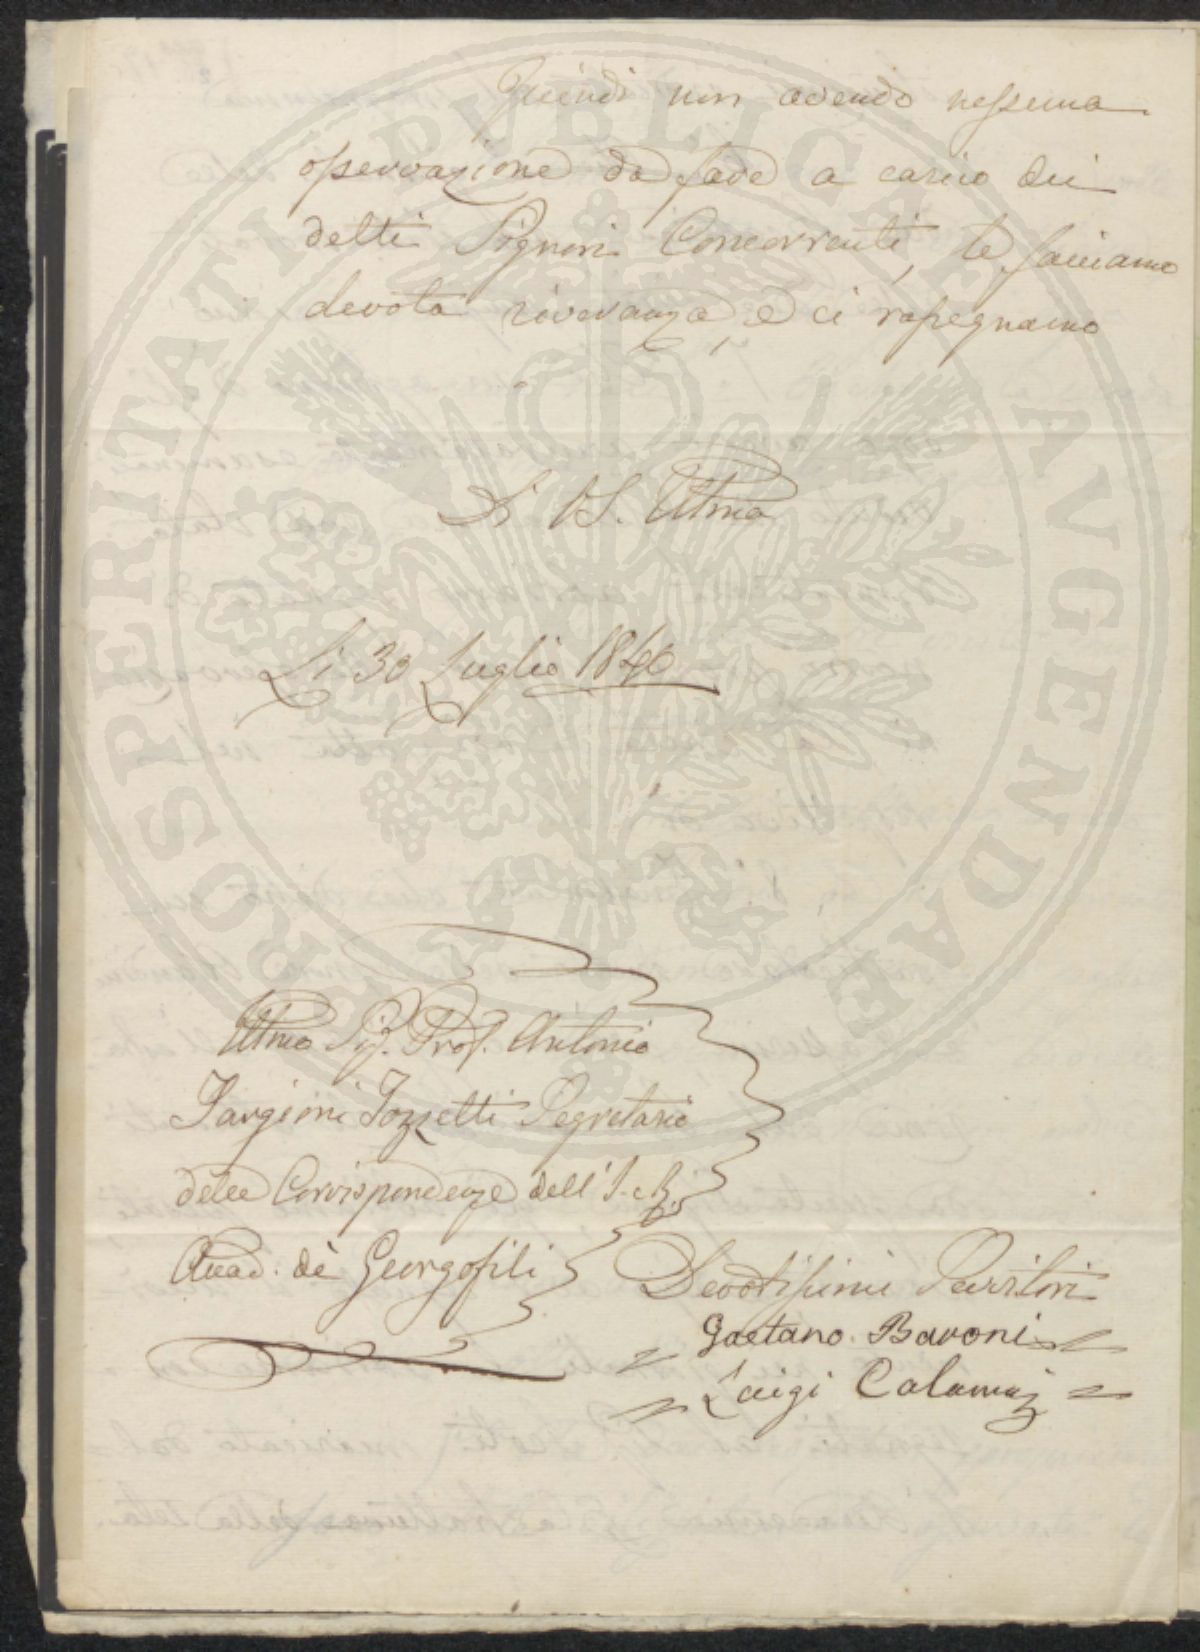 Quindi non avendo nessuna
osservazione da fare a carico dei
detti Signori Concorrenti, le facciamo
devota riveranza, e ci rassegnamo
Di VS. Illma
Li 30 Luglio 1840
Illmo Sig. Prof. Antonio
Targioni Tozzetti Segretario
delle Corrispondenze dell' I. e R.
Accad. dè Georgofili
Devotissimi Servitori
Gaetano Baroni
Luigi Calamai
PROSPERITATI PVBLICAE AVGENDAE